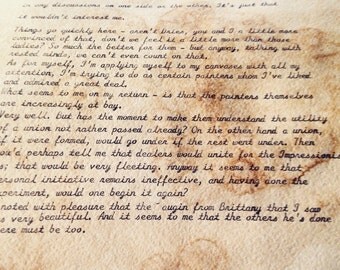 in any discussions on one side or the other. It's just that
it wouldn't interest me.
Things go quickly here - aren't Dries, you and I a little more
convinced of that, don't we feel it a little more than those
ladies? So much the better for them - but anyway, talking with
rested minds, we can't even count on that.
As for myself, I'm applying myself to my canvases with all my
attention, I'm trying to do as certain painters whom I've liked
and admired a great deal.
What seems to me on my return - is that the painters themselves
are increasingly at bay.
Very well. But has the moment to make them understand the utility
of a union not rather passed already? On the other hand a union,
if it were formed, would go under if the rest went under. Then
you'd perhaps tell me that dealers would unite for the Impressionis
s; that would be very fleeting. Anyway it seems to me that
personal initiative remains ineffective, and having done the
experiment, would one begin it again?
noted with pleasure that the augin from Brittany that I saw
s very beautiful. And it seems to me that the others he's done
ere must be too.